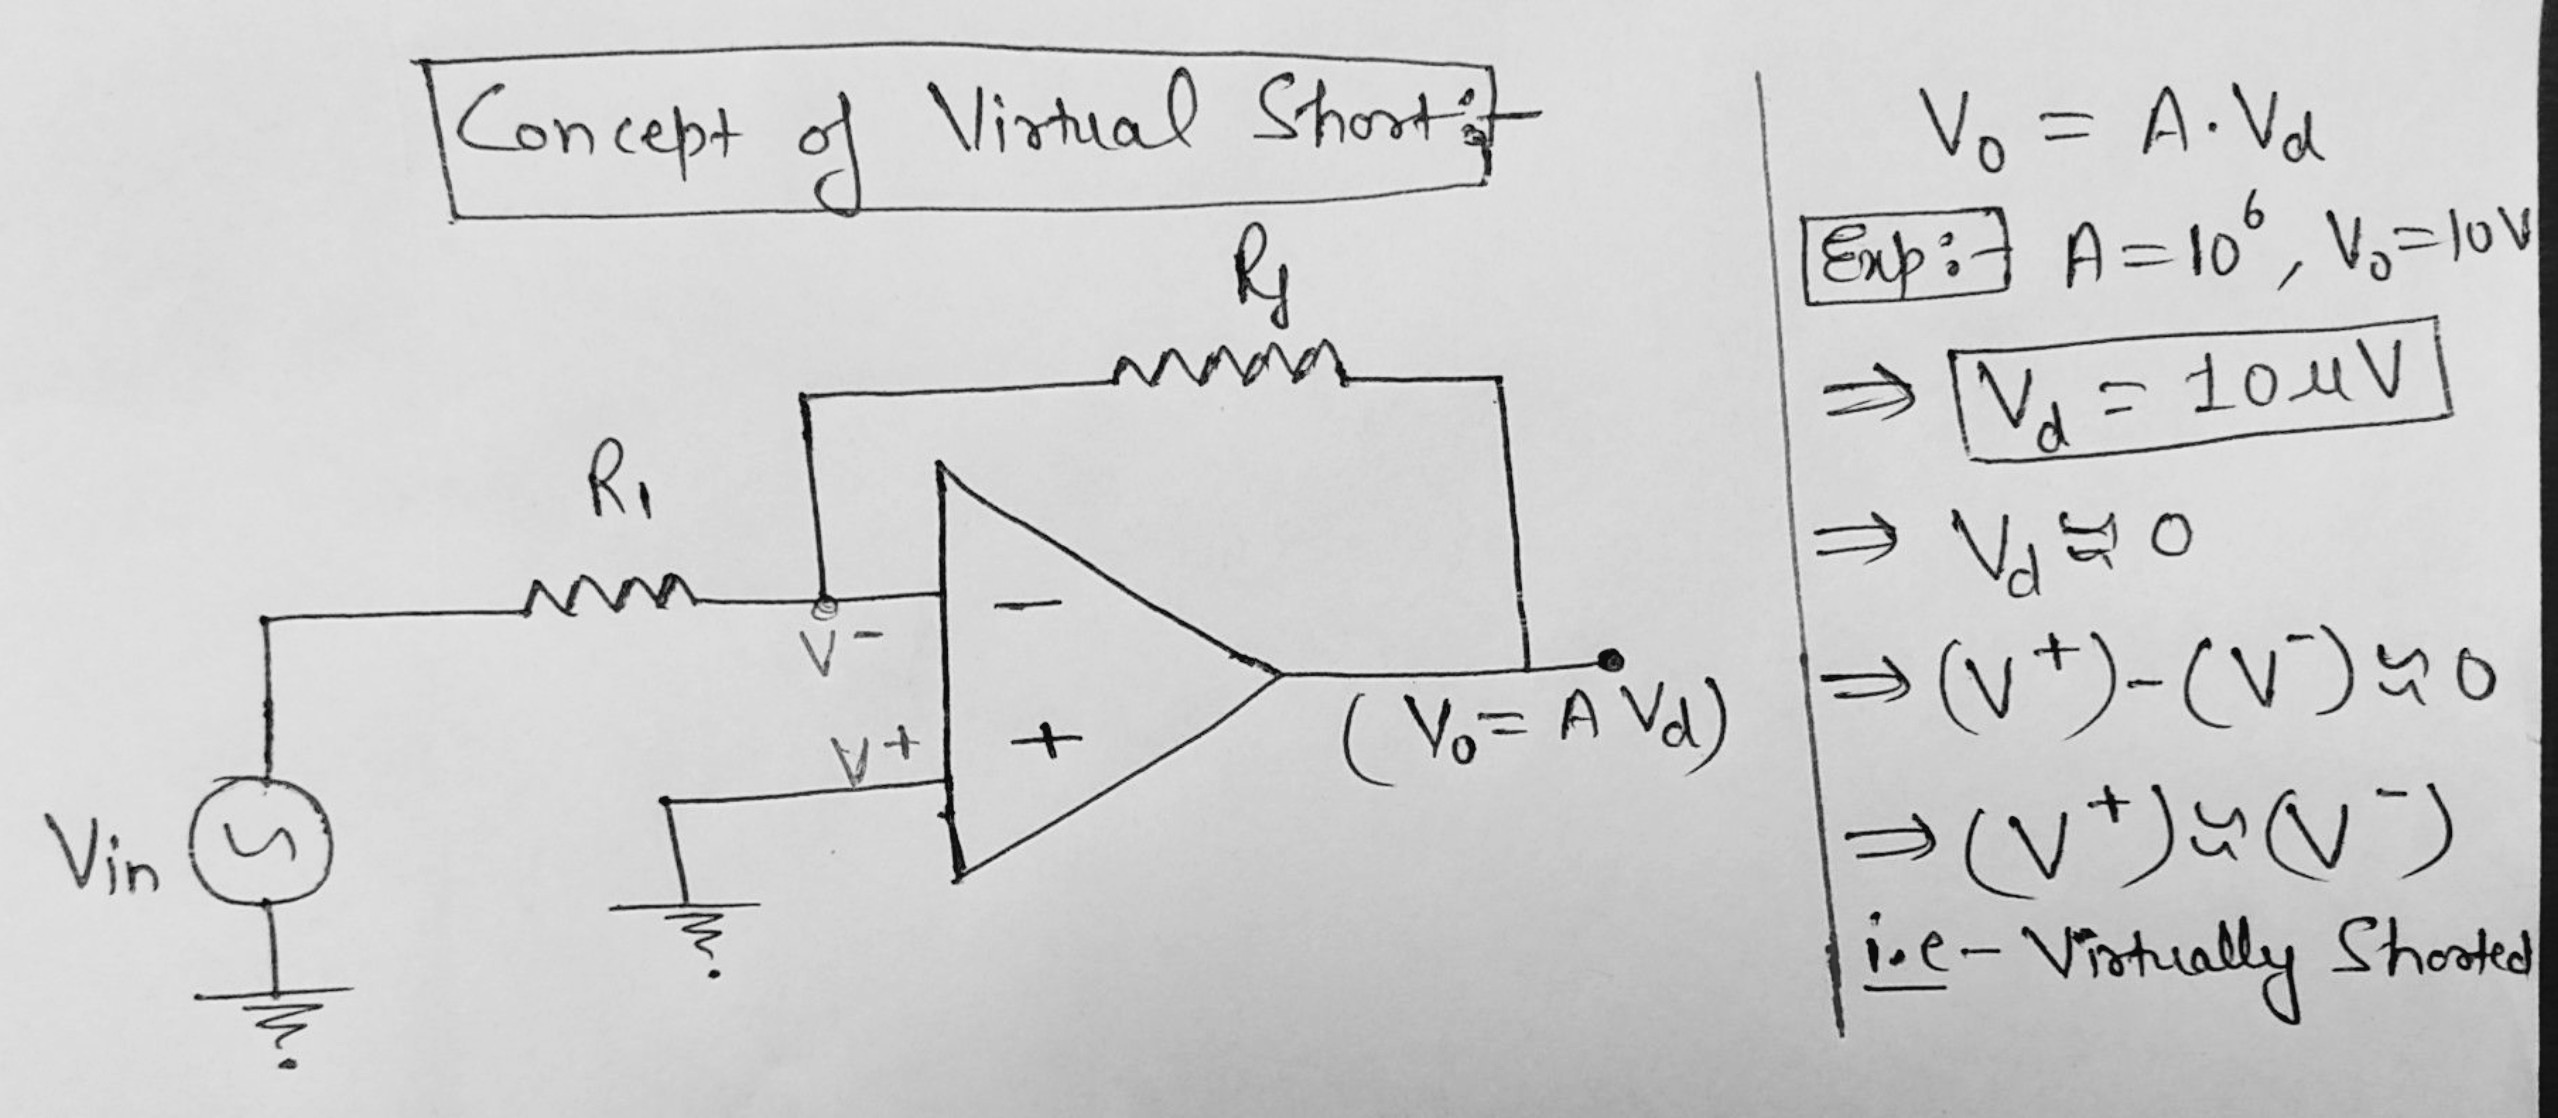 Concept of Virtual Short:-
Rf
R1
V-
-
V+
+
Vin
(Vo = A Vd)
Vo = A.Vd
Exp:- A = 10^6, Vo = 10V
⇒ Vd = 10μV
⇒ Vd ≈ 0
⇒ (V+) - (V-) ≈ 0
⇒ (V+) ≈ (V-)
i.e - Virtually Shorted